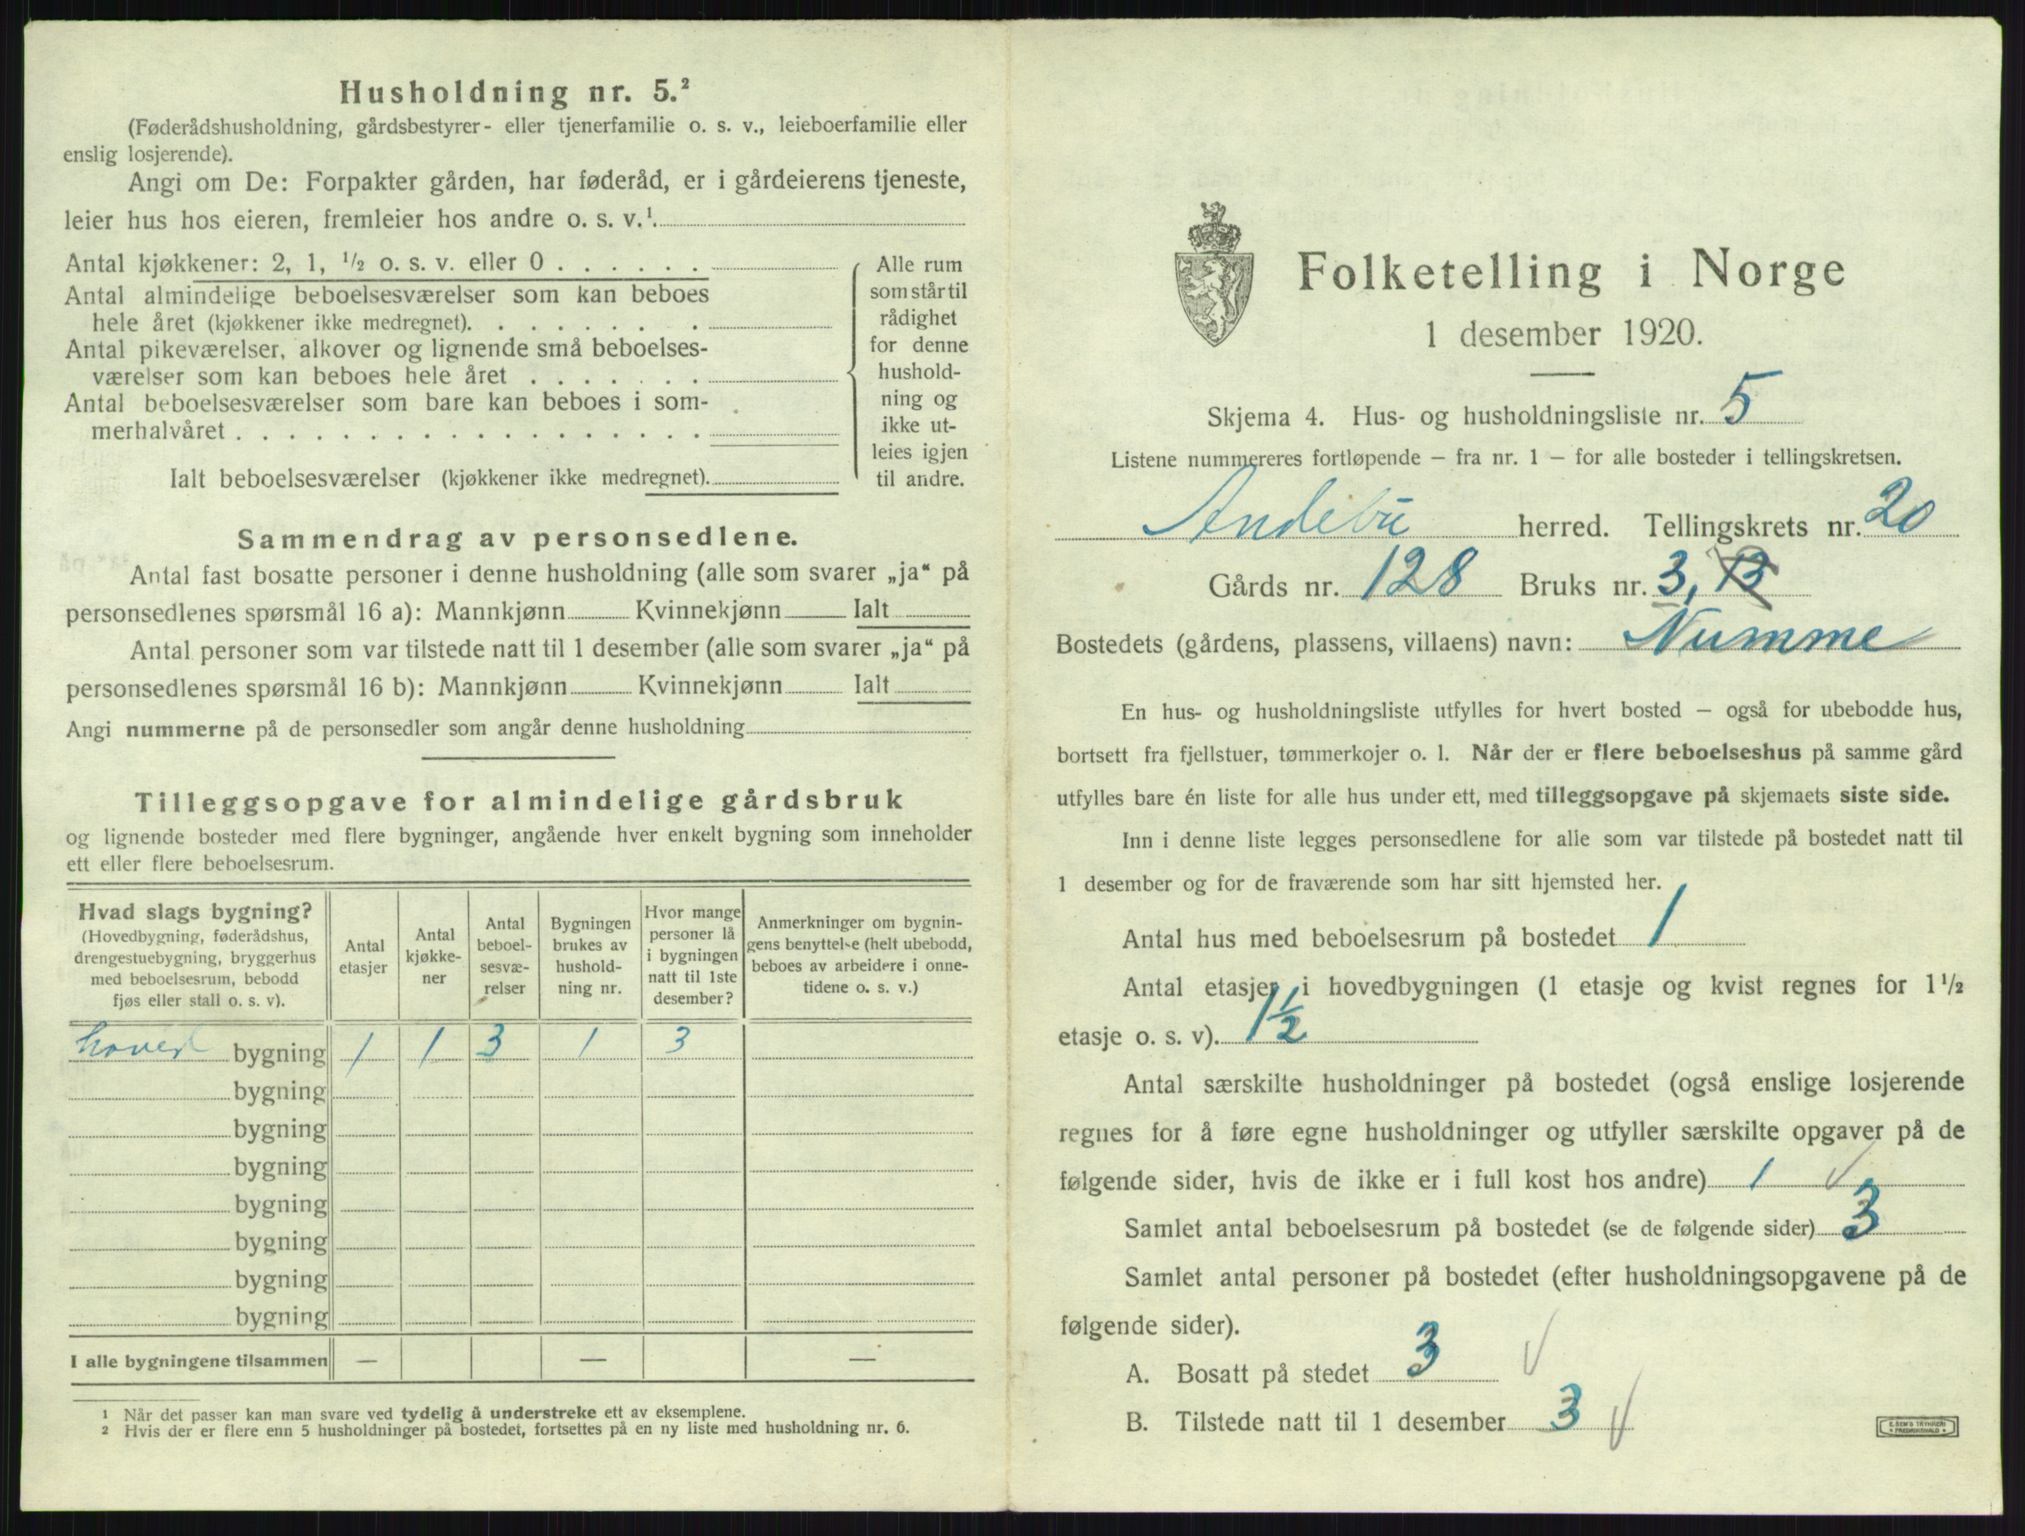 Husholdning nr. 5.²
(Føderådshusholdning, gårdsbestyrer- eller tjenerfamilie o. s. v., leieboerfamilie eller
enslig losjerende).
Angi om De: Forpakter gården, har føderåd, er i gårdeierens tjeneste,
leier hus hos eieren, fremleier hos andre o. s. v.¹.
Antal kjøkkener: 2, 1, ½ o. s. v. eller 0 . . . . . .
Antal almindelige beboelsesværelser som kan beboes
hele året (kjøkkener ikke medregnet). . . . . . . .
Antal pikeværelser, alkover og lignende små beboelses-
værelser som kan beboes hele året . . . . . . .
Antal beboelsesværelser som bare kan beboes i som-
merhalvåret . . . . . . . . . . . . . . . . . .
Ialt beboelsesværelser (kjøkkener ikke medregnet).
Alle rum
som står til
rådighet
for denne
hushold-
ning og
ikke ut-
leies igjen
til andre.
Sammendrag av personsedlene.
Antal fast bosatte personer i denne husholdning (alle som svarer „ja“ på
personsedlenes spørsmål 16 a): Mannkjønn Kvinnekjønn Ialt
Antal personer som var tilstede natt til 1 desember (alle som svarer „ja“ på
personsedlenes spørsmål 16 b): Mannkjønn Kvinnekjønn Ialt
Angi nummerne på de personsedler som angår denne husholdning
Tilleggsopgave for almindelige gårdsbruk
og lignende bosteder med flere bygninger, angående hver enkelt bygning som inneholder
ett eller flere beboelsesrum.
Hvad slags bygning?
(Hovedbygning, føderådshus,
drengestuebygning, bryggerhus
med beboelsesrum, bebodd
fjøs eller stall o. s. v).
Antal
etasjer
Antal
kjøkke-
ner
Antal
beboel-
sesvæ-
relser
Bygningen
brukes av
hushold-
ning nr.
Hvor mange
personer lå
i bygningen
natt til 1ste
desember?
Anmerkninger om bygnin-
gens benyttelse (helt ubebodd,
beboes av arbeidere i onne-
tidene o. s. v.)
hoved bygning 1 1 3 1 3
bygning
bygning
bygning
bygning
bygning
bygning
bygning
I alle bygningene tilsammen — — —
¹ Når det passer kan man svare ved tydelig å understreke ett av eksemplene.
² Hvis der er flere enn 5 husholdninger på bostedet, fortsettes på en ny liste med husholdning nr. 6.
Folketelling i Norge
1 desember 1920.
Skjema 4. Hus- og husholdningsliste nr. 5
Listene nummereres fortløpende – fra nr. 1 – for alle bosteder i tellingskretsen.
Andebu herred. Tellingskrets nr. 20
Gårds nr. 128 Bruks nr. 3, 13
Bostedets (gårdens, plassens, villaens) navn: Numme
En hus- og husholdningsliste utfylles for hvert bosted – også for ubebodde hus,
bortsett fra fjellstuer, tømmerkojer o. l. Når der er flere beboelseshus på samme gård
utfylles bare én liste for alle hus under ett, med tilleggsopgave på skjemaets siste side.
Inn i denne liste legges personsedlene for alle som var tilstede på bostedet natt til
1 desember og for de fraværende som har sitt hjemsted her.
Antal hus med beboelsesrum på bostedet 1
Antal etasjer i hovedbygningen (1 etasje og kvist regnes for 1½
etasje o. s. v). 1½
Antal særskilte husholdninger på bostedet (også enslige losjerende
regnes for å føre egne husholdninger og utfyller særskilte opgaver på de
følgende sider, hvis de ikke er i full kost hos andre) 1 √
Samlet antal beboelsesrum på bostedet (se de følgende sider) 3
Samlet antal personer på bostedet (efter husholdningsopgavene på de
følgende sider).
A. Bosatt på stedet 3 √
B. Tilstede natt til 1 desember 3 √
E. SEM'S TRYKKERI
FREDRIKSHALD